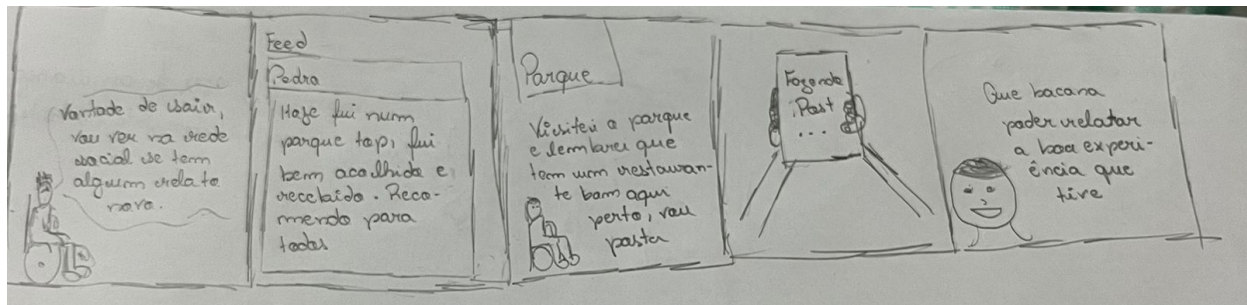 Vontade de sair,
vou ver na rede
social se tem
algum relato
novo.
Feed
Pedro
Hoje fui num
parque top, fui
bem acolhido e
recebido. Reco-
mendo para
todos
Parque
Visitei o parque
e lembrei que
tem um restauran-
te bom aqui
perto, vou
postar
Fazendo
Post
...
Que bacana
poder relatar
a boa experi-
ência que
tive